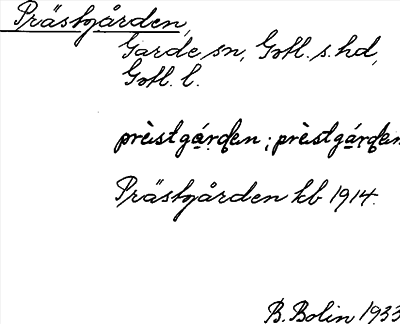 Prästgården,
Garde sn, Gotl. s. hd,
Gotl. l.
prèstgárden ; prèstgárden
Prästgården kb 1914.
B. Bolin 1933